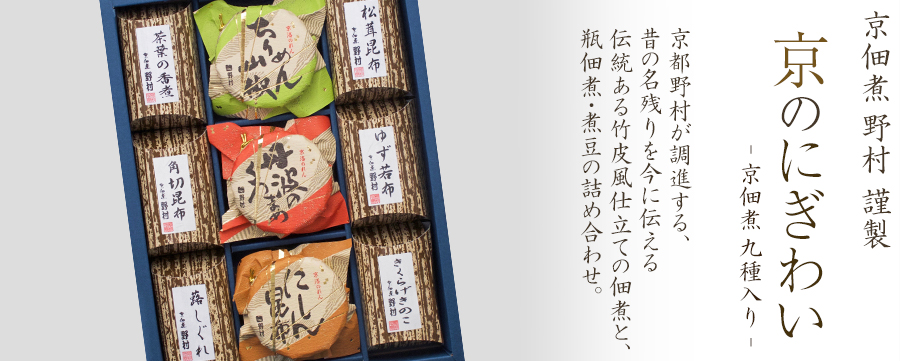 京佃煮 野村 謹製
京のにぎわい
－京佃煮 九種入り－
京都野村が調進する、
昔の名残りを今に伝える
伝統ある竹皮風仕立ての佃煮と、
瓶佃煮・煮豆の詰め合わせ。
松茸昆布
野村
ちりめん
山椒
野村
茶葉の香煮
野村
ゆず若布
野村
丹波の
くろまめ
野村
角切昆布
野村
きくらげきのこ
野村
にしん
昆布
野村
蕗しぐれ
野村